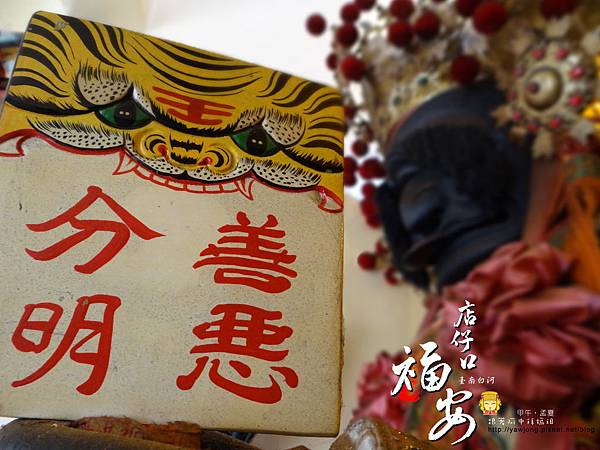 王
善惡
分明
店仔口
福安
臺南白河
甲午・孟夏
http://yawjong.pixnet.net/blog